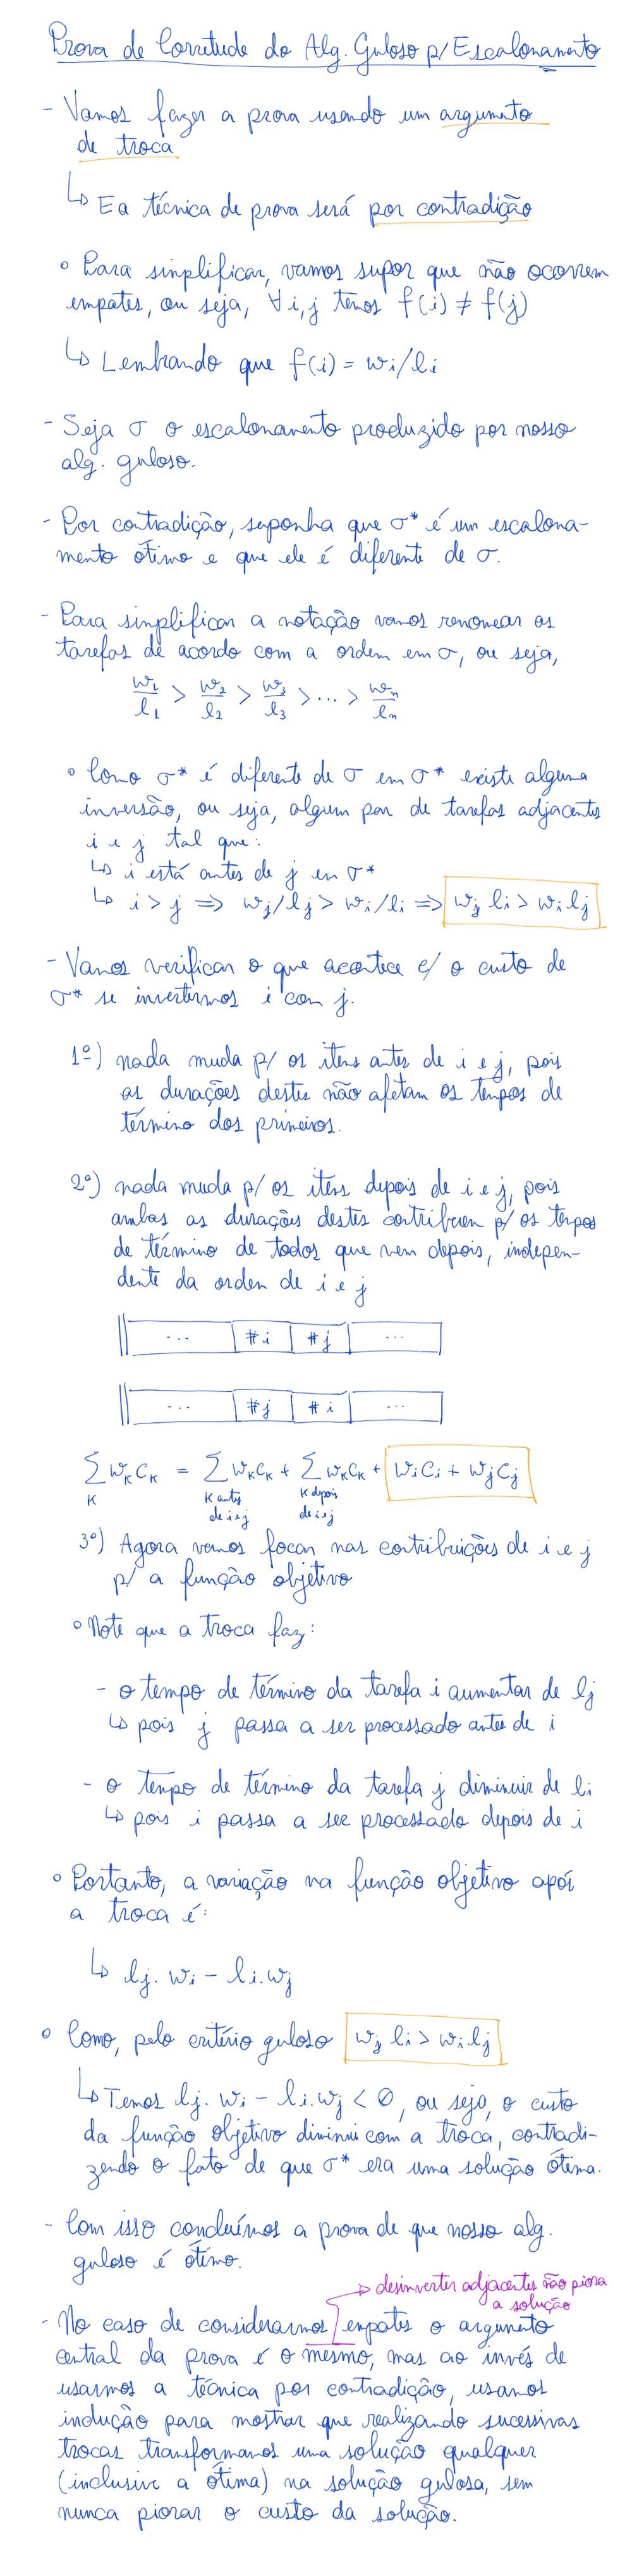 Prova de Corretude do Alg. Guloso p/ Escalonamento
- Vamos fazer a prova usando um argumento
de troca
↳ E a técnica de prova será por contradição
° Para simplificar, vamos supor que não ocorrem
empates, ou seja, ∀ i,j temos f(i) ≠ f(j)
↳ Lembrando que f(i) = wi/li
- Seja σ o escalonamento produzido por nosso
alg. guloso.
- Por contradição, suponha que σ* é um escalona-
mento ótimo e que ele é diferente de σ.
- Para simplificar a notação vamos renomear as
tarefas de acordo com a ordem em σ, ou seja,
w1/l1 > w2/l2 > w3/l3 > ... > wn/ln
° Como σ* é diferente de σ em σ* existe alguma
inversão, ou seja, algum par de tarefas adjacentes
i e j tal que:
↳ i está antes de j em σ*
↳ i > j ⇒ wj/lj > wi/li ⇒ wj li > wi lj
- Vamos verificar o que acontece c/ o custo de
σ* se invertermos i com j.
1º) nada muda p/ os itens antes de i e j, pois
as durações destes não afetam os tempos de
término dos primeiros.
2º) nada muda p/ os itens depois de i e j, pois
ambas as durações destes contribuem p/ os tempos
de término de todos que vem depois, indepen-
dente da ordem de i e j
... #i #j ...
... #j #i ...
∑ wk ck = ∑ wk ck + ∑ wk ck + wi ci + wj cj
k k antes k depois
de i e j de i e j
3º) Agora vamos focar nas contribuições de i e j
p/ a função objetivo
° Note que a troca faz:
- o tempo de término da tarefa i aumentar de lj
↳ pois j passa a ser processado antes de i
- o tempo de término da tarefa j diminuir de li
↳ pois i passa a ser processado depois de i
° Portanto, a variação na função objetivo após
a troca é:
↳ lj. wi - li. wj
° Como, pelo critério guloso wj li > wi lj
↳ Temos lj. wi - li. wj < 0, ou seja, o custo
da função objetivo diminui com a troca, contradi-
zendo o fato de que σ* era uma solução ótima.
- Com isso concluímos a prova de que nosso alg.
guloso é ótimo.
→ desinverter adjacentes não piora
a solução
- No caso de considerarmos empates o argumento
central da prova é o mesmo, mas ao invés de
usarmos a técnica por contradição, usamos
indução para mostrar que realizando sucessivas
trocas transformamos uma solução qualquer
(inclusive a ótima) na solução gulosa, sem
nunca piorar o custo da solução.